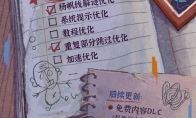 杨帆线解谜优化
系统提示优化
教程优化
重复部分跳过优化
加速优化
后续更新:
免费内容DLC